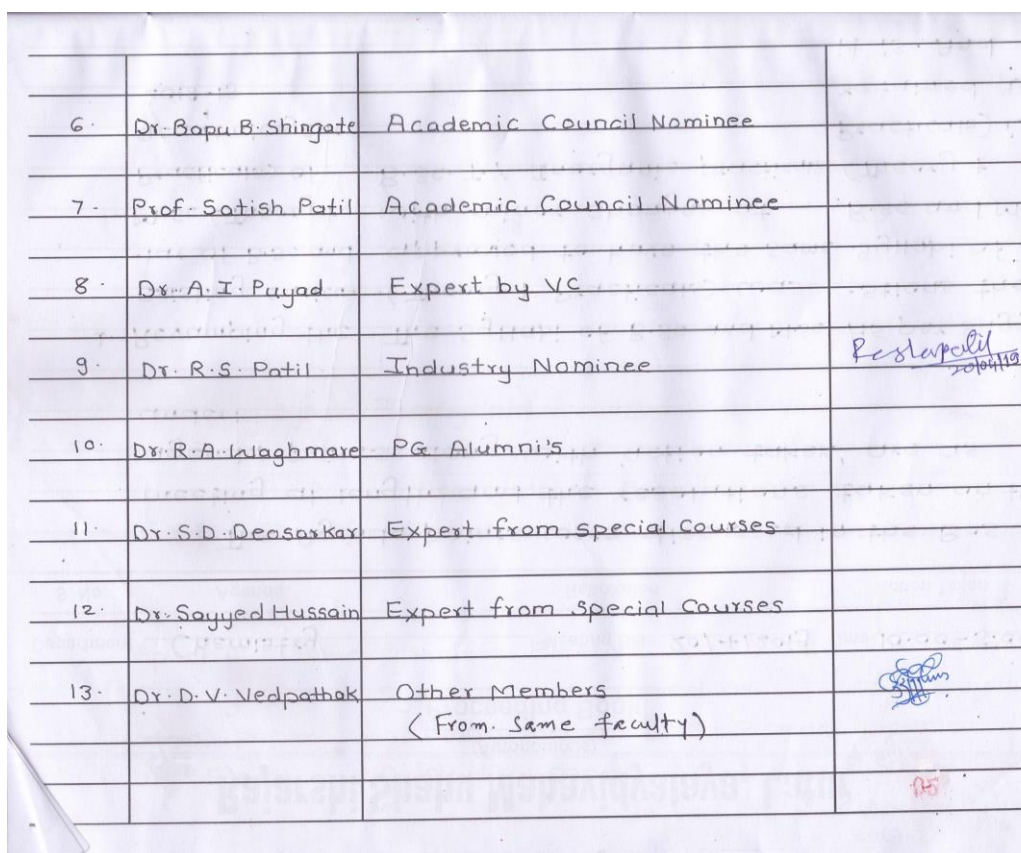 6. Dr. Bapu B. Shingate Academic Council Nominee
7. Prof. Satish Patil Academic Council Nominee
8. Dr. A. I. Puyad Expert by VC
9. Dr. R.S. Patil Industry Nominee
20/04/19
10. Dr. R.A. Waghmare PG Alumni's
11. Dr. S.D. Deosarkar Expert from special Courses
12. Dr. Sayyed Hussain Expert from special Courses
13. Dr. D. V. Vedpathak Other Members
(From. Same faculty)
05